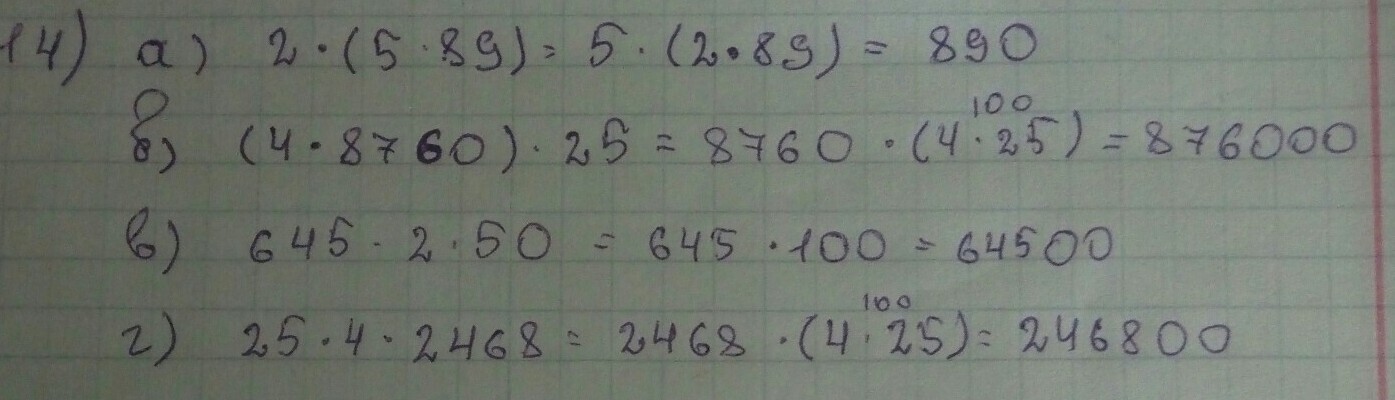 14) а) 2·(5·89)=5·(2·89)=890
100
б) (4·8760)·25=8760·(4·25)=876000
в) 645·2·50=645·100=64500
100
г) 25·4·2468=2468·(4·25)=246800